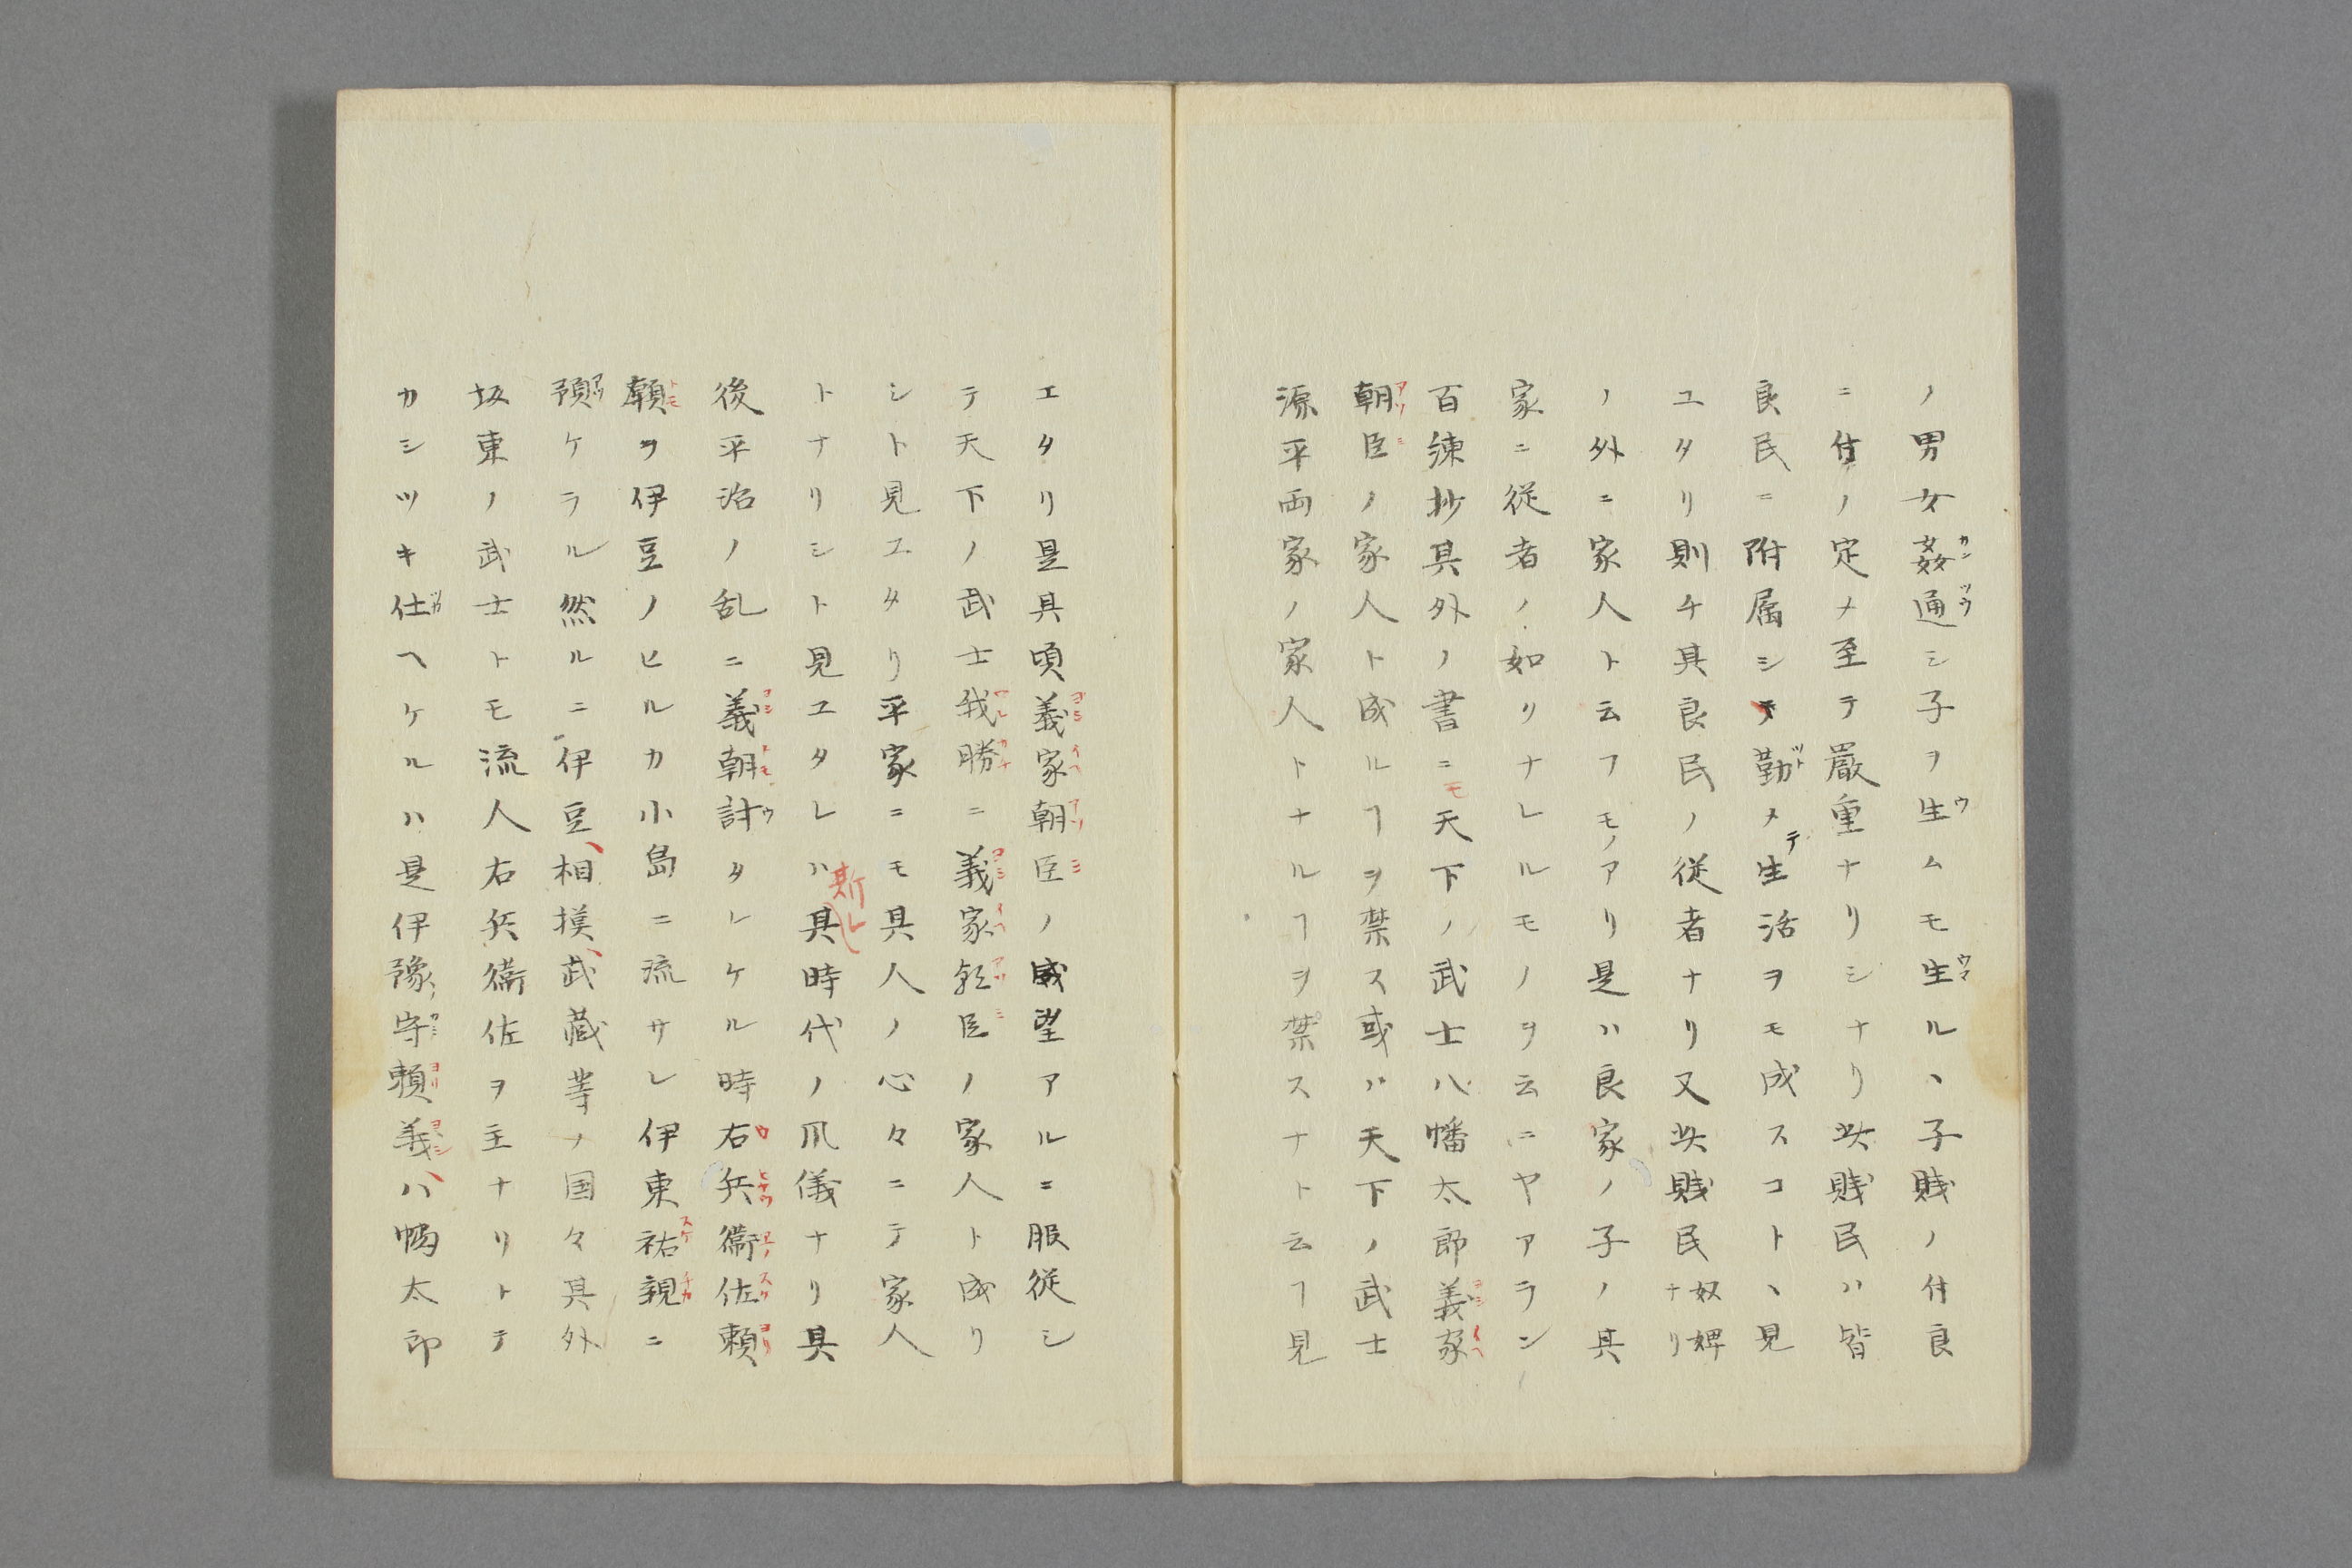 ノ男女姦通シ子ヲ生ムモ生ルヽ子賎ノ付良
ニ付ノ定メ至テ嚴重ナリシナリ此賎民ハ皆
良民ニ附属シテ勤メテ生活ヲモ成スコトヽ見
ユタリ則チ其良民ノ従者ナリ又此賎民奴婢ナリ
ノ外ニ家人ト云フモノアリ是ハ良家ノ子ノ其
家ニ従者ノ如クナレルモノヲ云ニヤアラン
百練抄其外ノ書ニモ天下ノ武士八幡太郎義家
朝臣ノ家人ト成ルヿヲ禁ス或ハ天下ノ武士
源平両家ノ家人トナルヿヲ禁スナト云ヿ見
エタリ是其頃義家朝臣ノ威望アルニ服従シ
テ天下ノ武士我勝ニ義家朝臣ノ家人ト成リ
シト見ユタリ平家ニモ其人ノ心々ニテ家人
トナリシト見ユタレハ斯レ其時代ノ風儀ナリ其
後平治ノ乱ニ義朝討タレケル時右兵衞佐頼
頼ヲ伊豆ノヒルカ小島ニ流サレ伊東祐親ニ
預ケラル然ルニ伊豆、相摸、武蔵等ノ国々其外
坂東ノ武士トモ流人右兵衞佐ヲ主ナリトテ
カシツキ仕ヘケルハ是伊豫守頼義、八幡太郎